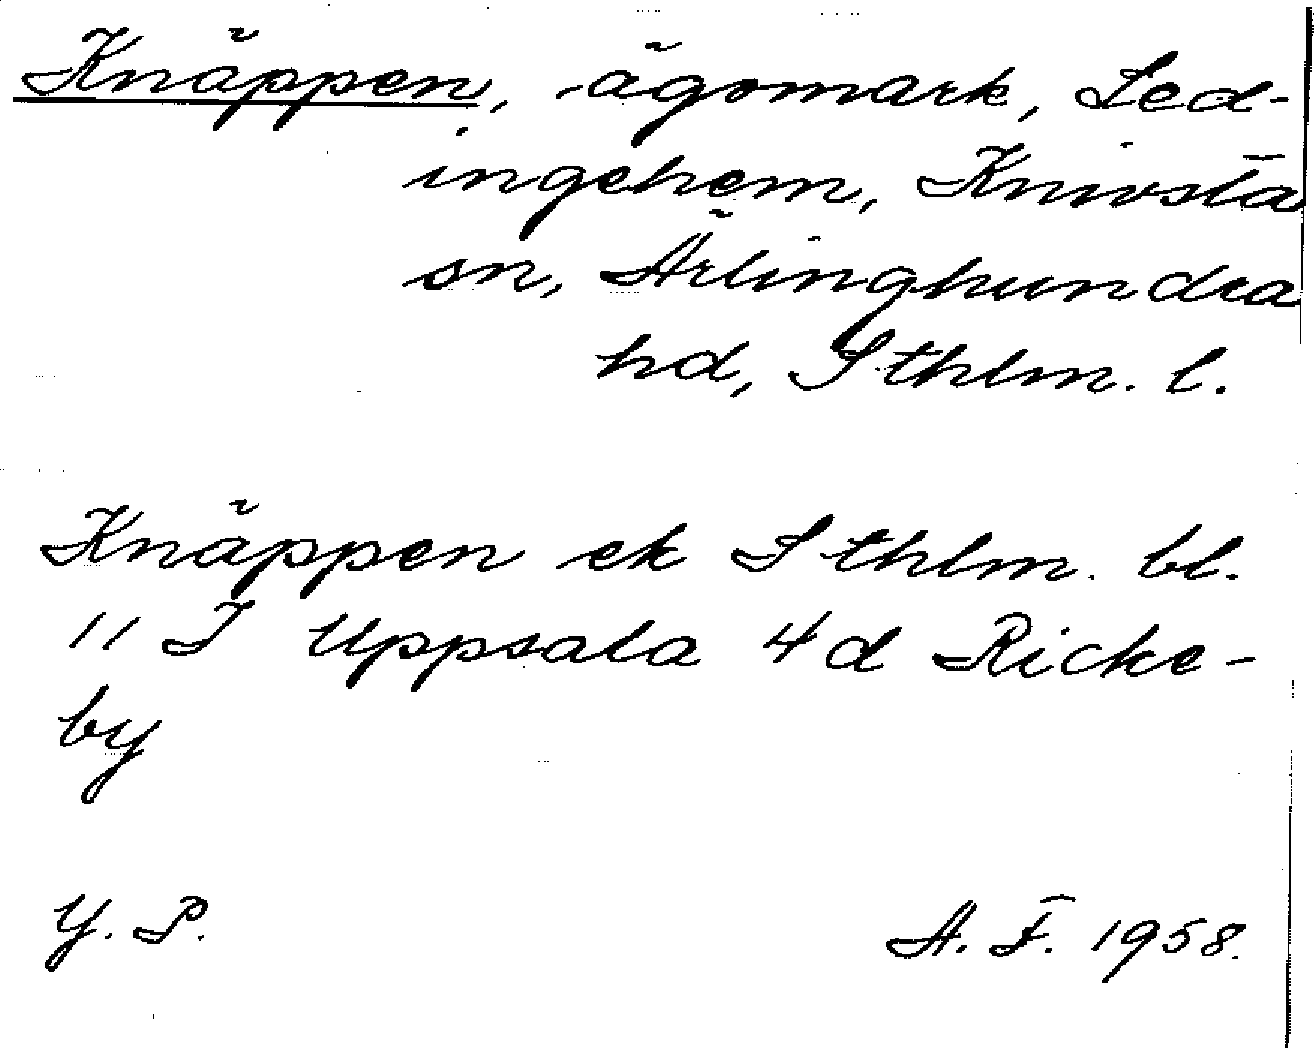 Knäppen, ägomark, Led-
ingehem, Knivsta
sn, Ärlinghundra
hd, Sthlm. l.
Knäppen ek Sthlm. bl.
11 I Uppsala 4d Ricke-
by
Y. P.
A. F. 1958.